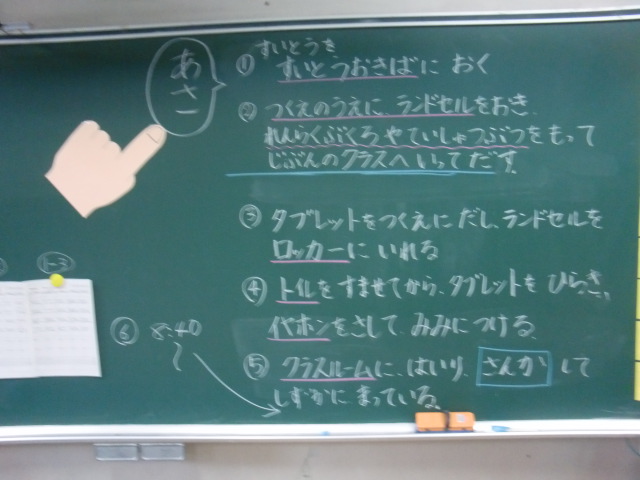 あさー
すいとうを
① すいとうおきばに おく
② つくえのうえに、ランドセルをおき、
れんらくぶくろやていしゅつぶつをもって
じぶんのクラスへいってだす。
③ タブレットをつくえにだし、ランドセルを
ロッカーにいれる
④ トイレをすませてから、タブレットを ひらき、
イヤホンをさして、みみにつける。
⑤ クラスルームに、はいり、さんかして
しずかに まっている。
⑥ 8:40
1-3